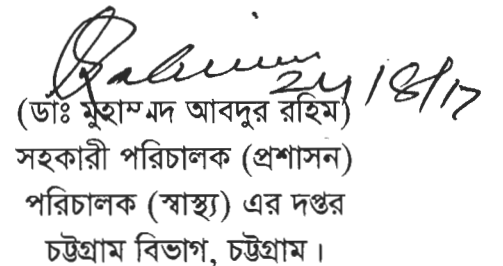 24/8/17
(ডাঃ মুহাম্মদ আবদুর রহিম)
সহকারী পরিচালক (প্রশাসন)
পরিচালক (স্বাস্থ্য) এর দপ্তর
চট্টগ্রাম বিভাগ, চট্টগ্রাম।